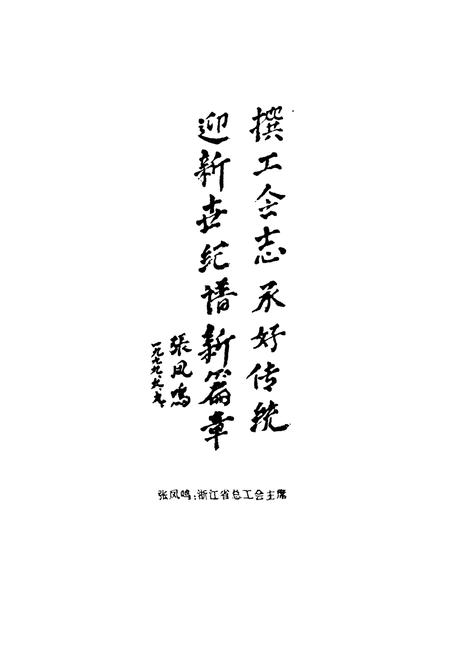 撰工会志承好传统
迎新世纪谱新篇章
張凤鸣
张凤鸣:浙江省总工会主席